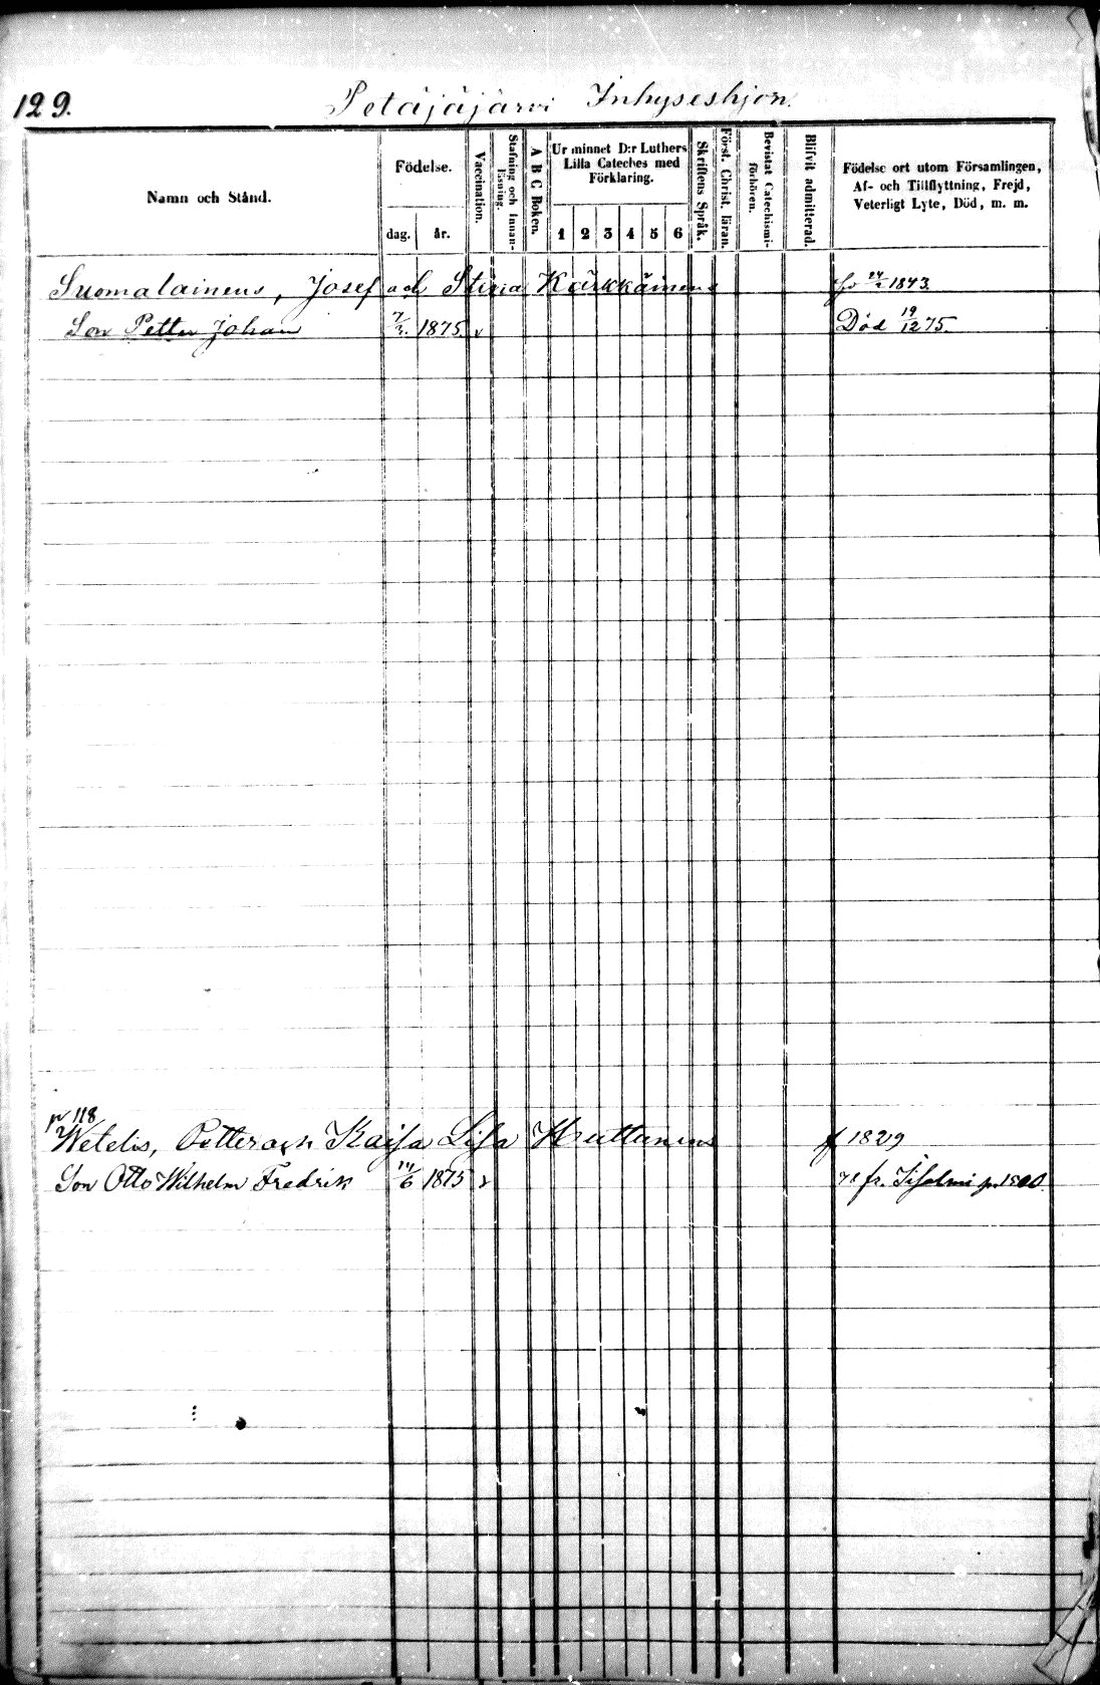 129.
Petäjäjärvi Inhyseshjon.
Namn och Stånd.
Födelse.
dag. år.
Vaccination.
Stafning och Innanläsning.
A B C Boken.
Ur minnet D:r Luthers
Lilla Cateches med
Förklaring.
1 2 3 4 5 6
Skriftens Språk.
Först. Christ. läran.
Bevistat Catechismiförhören.
Blifvit admitterad.
Födelse ort utom Församlingen,
Af- och Tillflyttning, Frejd,
Veterligt Lyte, Död, m. m.
Suomalainens, Josef och Stina Kärkkäinens 1843
Son Petter Johan 7/3. 1875 v Död 19/12 75
p 118
Wetelis, Petter och Kaisa Lisa Huttunens f 1829
Son Otto Wilhelm Fredrik 14/6 1875 v 78 fr. Iisalmi p.